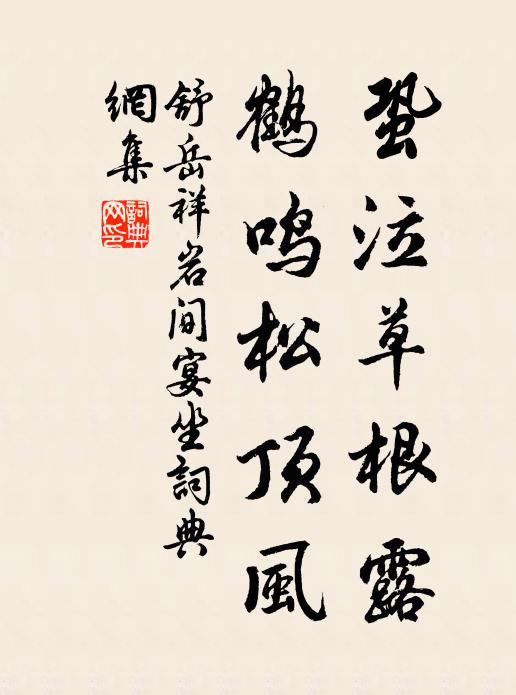 蛩泣草根露
鹤鸣松顶風
舒岳祥岩间宴坐詞典
網集
詞典网印